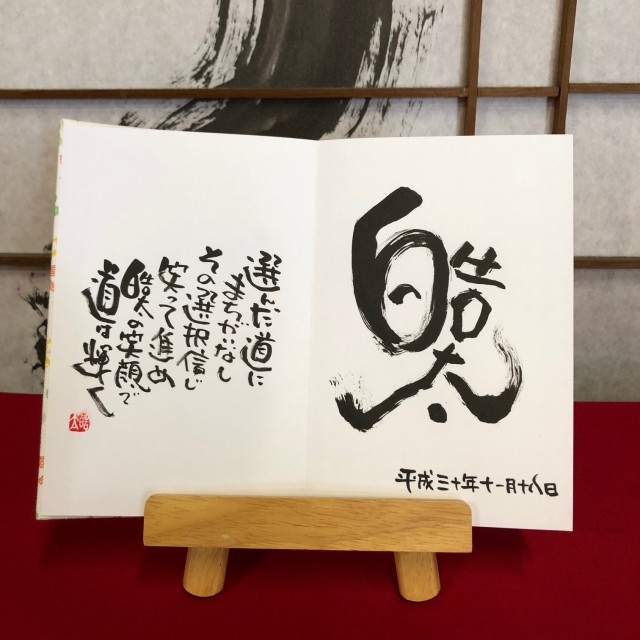 皓太
平成三十年十一月十八日
選んだ道に
まちがいなし
その選択信じ
笑って進め
皓太の笑顔で
道は輝く